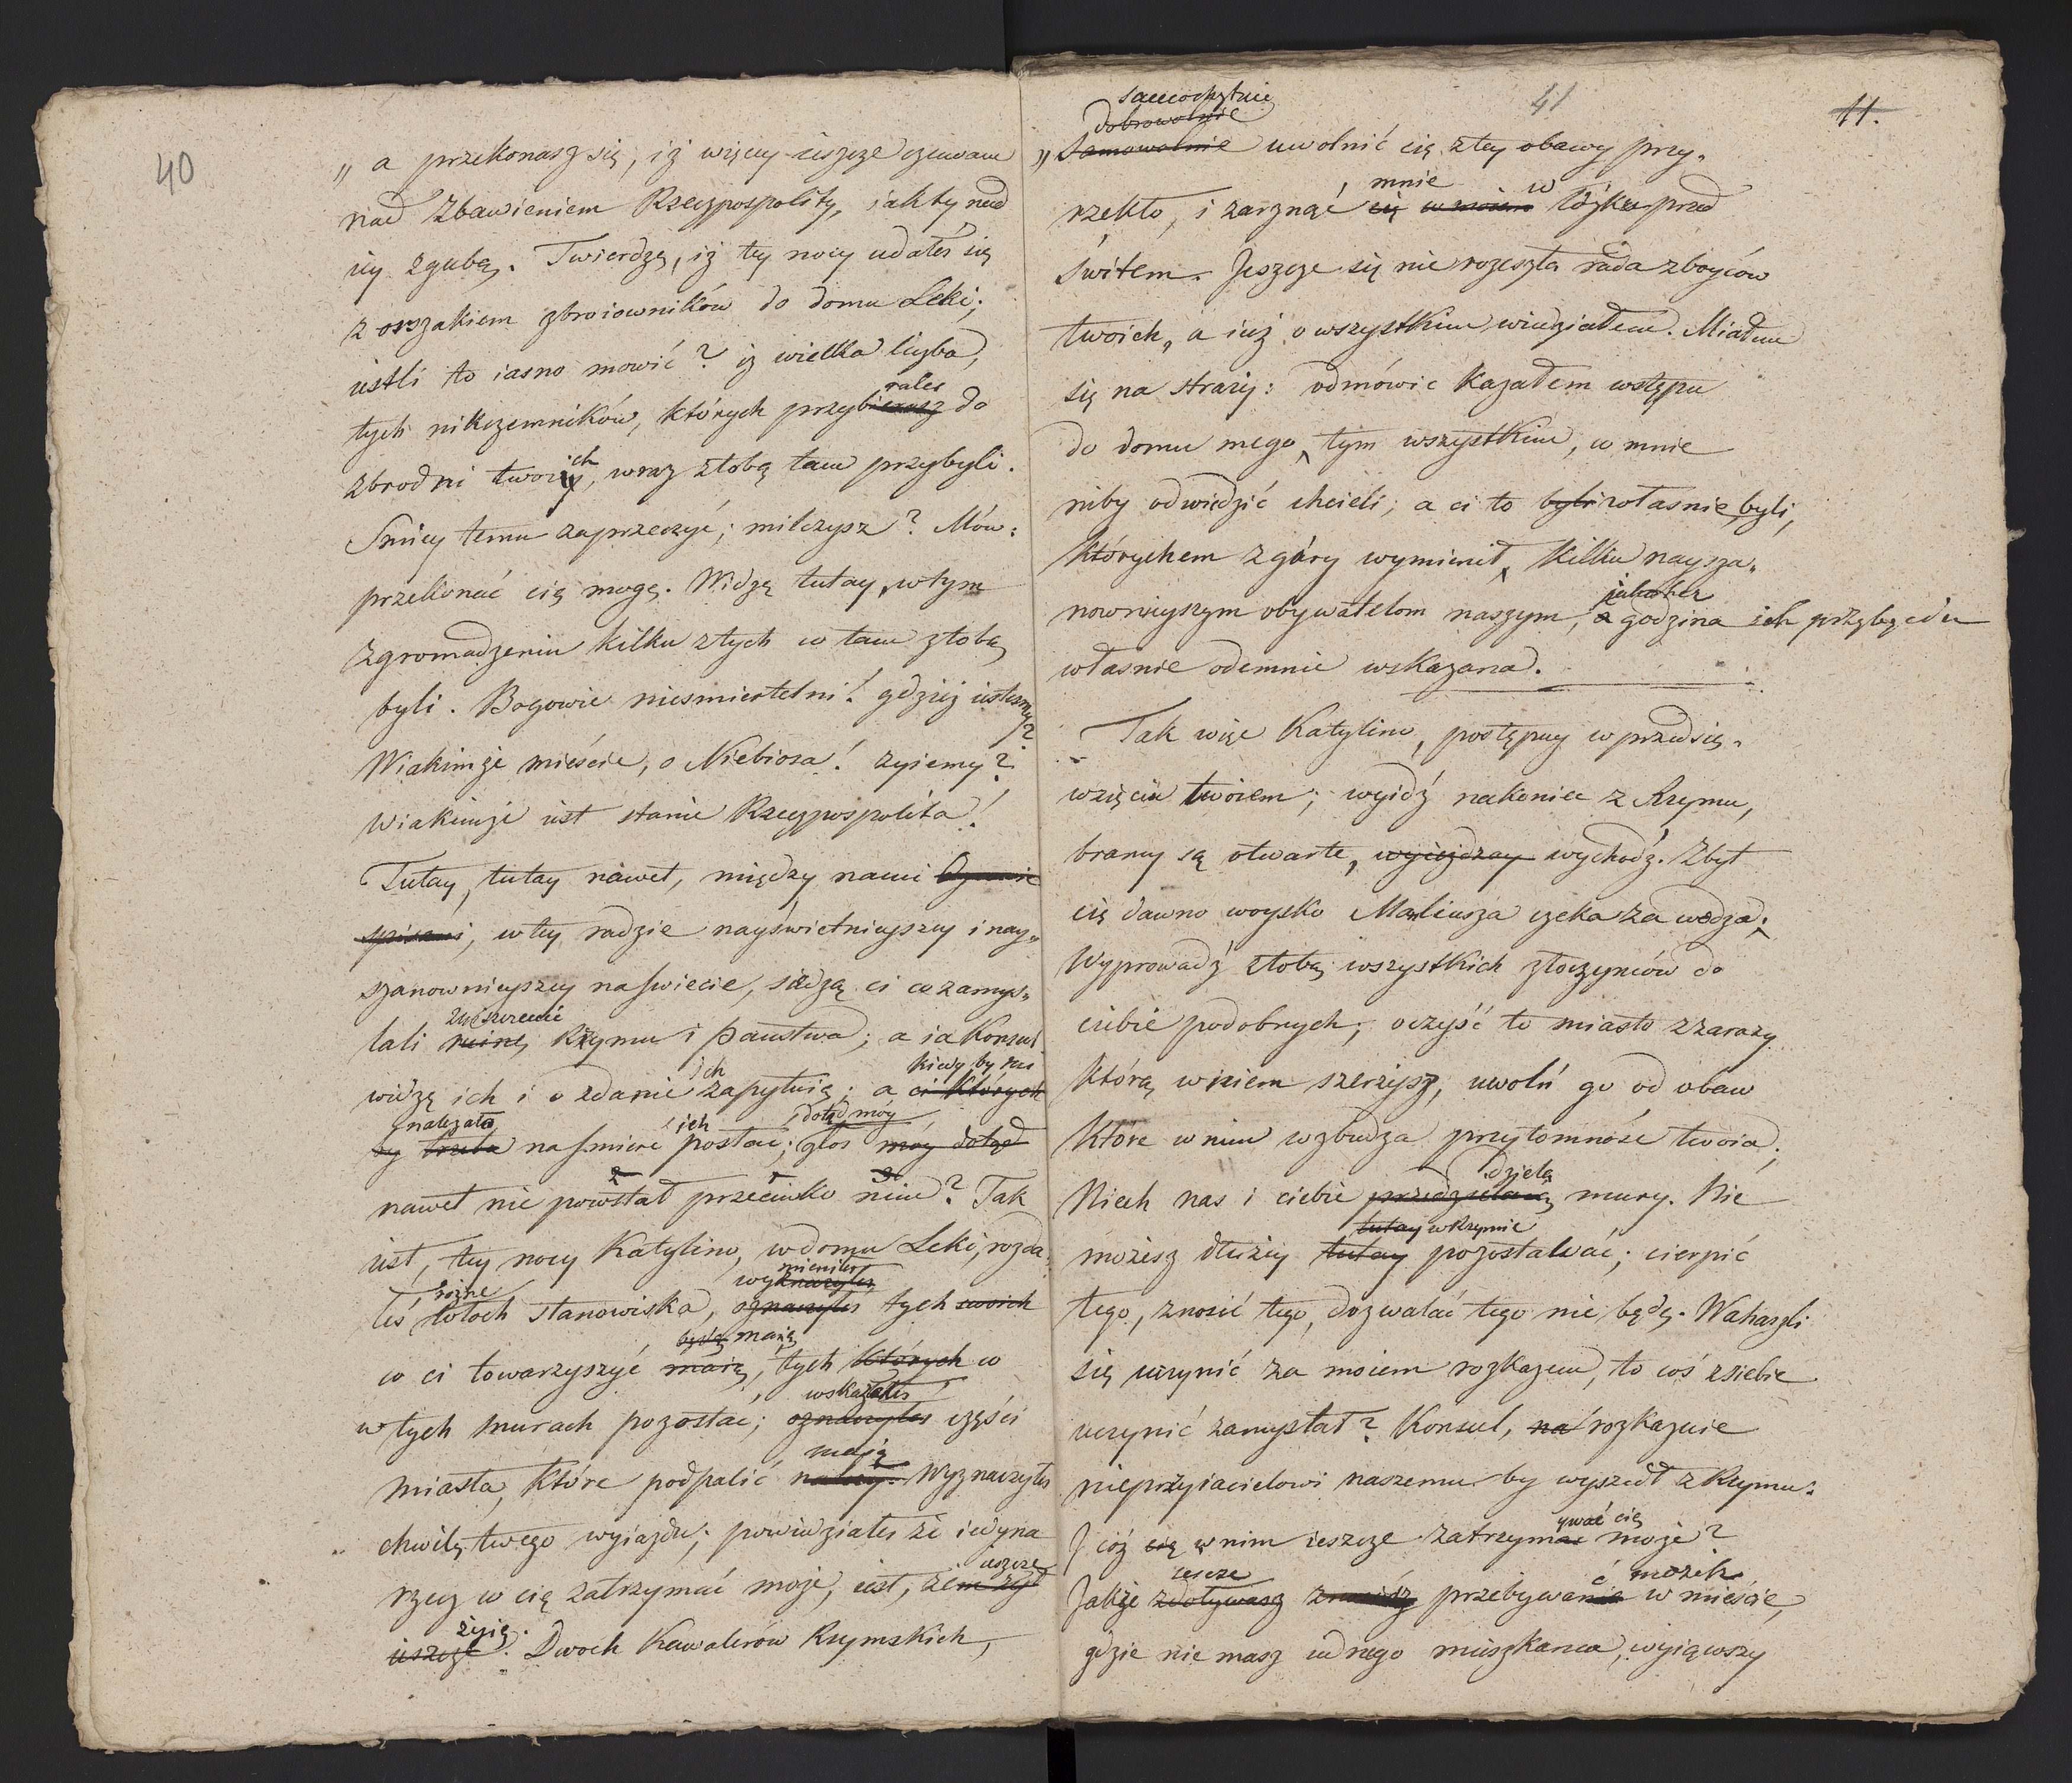 40
„ a przekonasz się, iż więcey ieszcze czuwam
nad Zbawieniem Rzeczpospolitey, iak ty nad
iey zgubą. Twierdzę, iż tey nocy udałeś się
z orszakiem zbroiowników do domu Leki;
iestli to iasno mowić? iż wielka liczba,
rałeś
tych nikczemników, których przybierasz do
ich
zbrodni twoiey, wraz z tobą tam przybyli.
Smiey temu zaprzeczyć; milczysz? Mów:
przekonać cię mogę. Widzę tutay, w tym
zgromadzeniu kilku z tych co tam z tobą
byli. Bogowie niesmiertelni! gdzież iestesmy?
W iakimże mieście, o Niebiosa! żyiemy?
w iakimże iest stanie Rzeczpospolita!
Tutay, tutay nawet, między nami Oycowie
spisani, w tey radzie nayświetnieyszey i nay„
szanownieyszey na swiecie, siedzą ci co zamyś„
zniszczenie
lali ruinę Rzymu i Państwa; a ia Konsul
ich kiedy by na
widzę ich i o zdanie zapytuię; a ci których
należało ich dotąd móy
by trzeba na smierć postać; głos móy dotąd
nawet nie powstał przeciwko nim? Tak
iest, tey nocy Katylino, w domu Leki, rozda„
mieniłeś
różne wyznaczyłeś
łeś stanowiska, oznaczyłeś tych swoich
będą maią
co ci towarzyszyć maią, tych których co
wskazałeś
w tych murach pozostać; oznaczyłeś części
maią
miasta, które podpalić należy. Wyznaczyłeś
chwilę twego wyiazdu; powiedziałeś że iedyna
ieszcze
rzecz co cię zatrzymać może, iest, żem żył
żyię.
ieszcze. Dwóch Kawalerów Rzymskich,
41
11.
samochętnie
dobrowolnie
„ Samowolnie uwolnić cię z tey obawy przy„
mnie w
rzekło, i zarznąć cię w moiem łóżku przed
świtem. Jeszcze się nie rozeszła rada zbóyców
twoich, a iuż o wszystkiem wiedziałem. Miałem
się na straży: odmówić kazałem wstępu
do domu mego, tym wszystkim, co mnie
niby odwiedzić chcieli; a ci to byli własnie byli,
którychem z góry wymienił, kilku naysza„
iakoteż
nownieyszym obywatelom naszym, a godzina ich przybycia
własnie odemnie wskazana.
Tak więc Katylino, postępuy w przedsię„
wzięciu twoiem; wyidź nakoniec z Rzymu,
bramy są otwarte, wyieżdzay wychodź. Zbyt
cię dawno woysko Maliusza czeka za wodza.
Wyprowadź z tobą wszystkich złoczyńców do
ciebie podobnych, oczyść to miasto z zarazy
którą w niem szerzysz, uwolń go od obaw
które w nim wzbudza przytomność twoia;
dzielą
Niech nas i ciebie przedzielaią mury. Nie
tutay w Rzymie
możesz dłużey tutay pozostawać; cierpić
tego, znosić tego, dozwalać tego nie będę. Wahaszli
się uczynić za moiem rozkazem, to coś z siebie
uczynić zamyslał? Konsul, na rozkazuie
nieprzyiacielowi naszemu by wyszedł z Rzymu.
ywać cię
J cóż cię w nim ieszcze zatrzymać może?
iescze ć możesz
Jakże zdoływasz przebywanie w mieście,
gdzie nie masz iednego mieszkańca, wyiąwszy